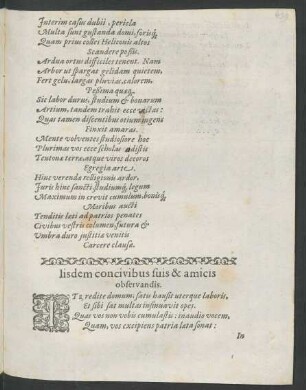 Interim casus dubii, pericla
Multa sunt gustanda domi, forisq́;
Quam prius colles Heliconis altos
Scandere possis.
Ardua ortus difficiles tenent. Nam
Arbor ut spargas gelidam quietem,
Fert gelu, largas pluvias, calorem
Pessima quæq́;
Sic labor durus, studium & bonarum
Artium, tandem trahit ecce
Quas tamen discentibus origin
Finxit amaras.
Mente volventes studiosiore hoc
Plurimas vos ecce scholas adistis
Teutona terra, atque viros decoros
Egregia arte.
Hinc verenda relligionis ardor,
Juris hinc sancti, studiumq́; legum
Maximum in crevit cumulum, bonisq́;
Moribus aucti
Tenditis læti ad patrios penates
Civibus vestris columen, futura &
Umbra duro justitia venitis
Carcere clausa.
Iisdem concivibus suis & amicis
observandis.
ITe, redite domum; satis hausit uterque laboris,
Et sibi sat multas insinuavit opes.
Quas vos non vobis cumulastis: inaudia vocem,
Quam, vos excipiens patria lata sonat:
In